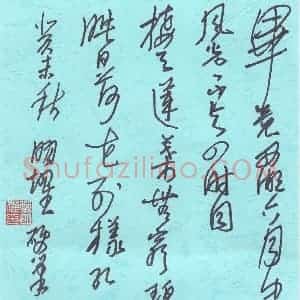 畢竟西湖六月中
風光不與四時同
接天蓮葉無窮碧
映日荷花別樣紅
癸未秋 硬筆
Shufaziliao.com